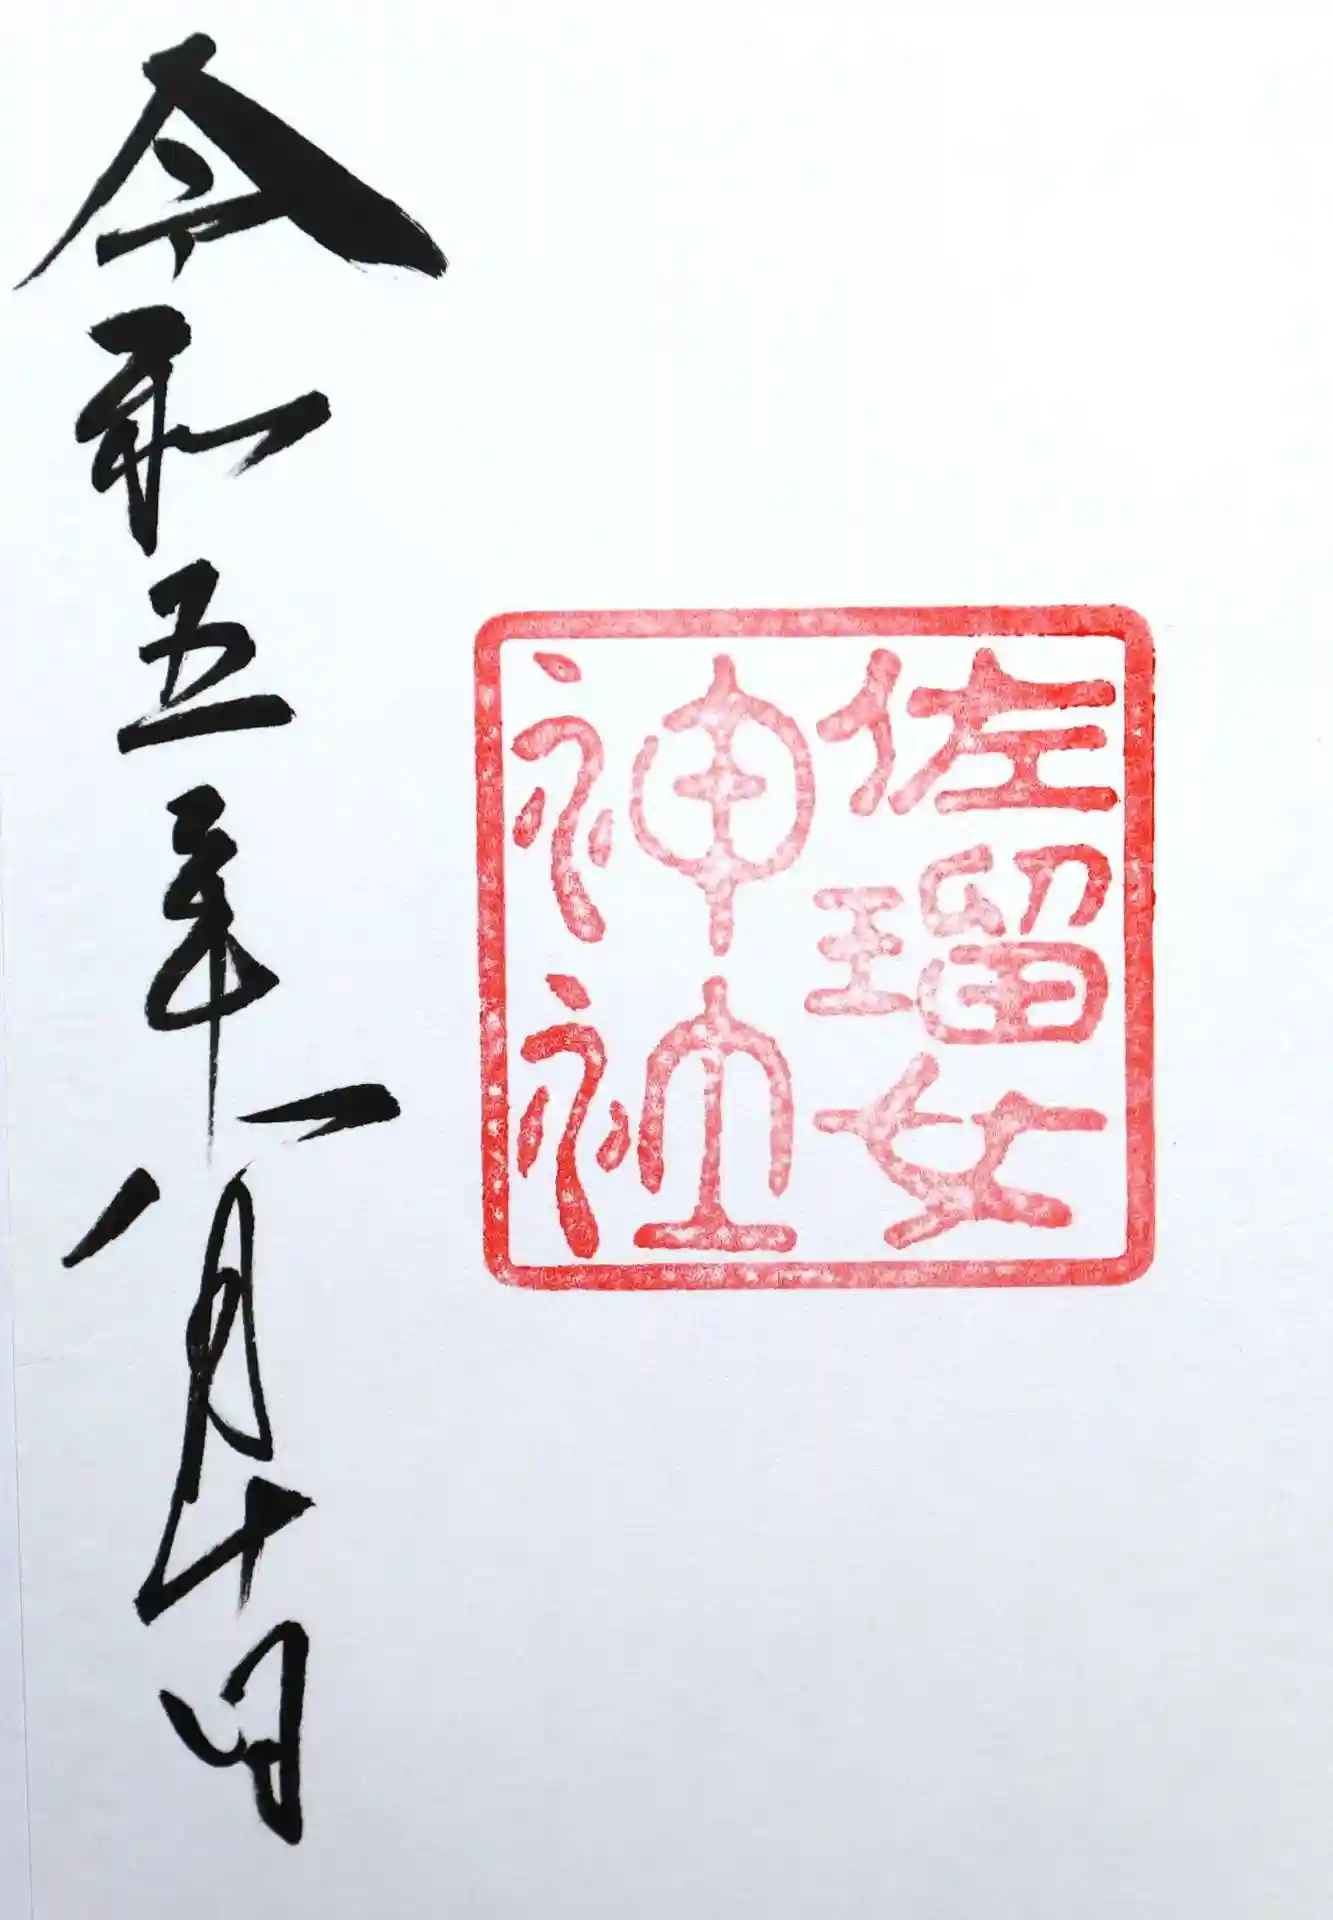 佐瑠女
神社
令和五年八月十日